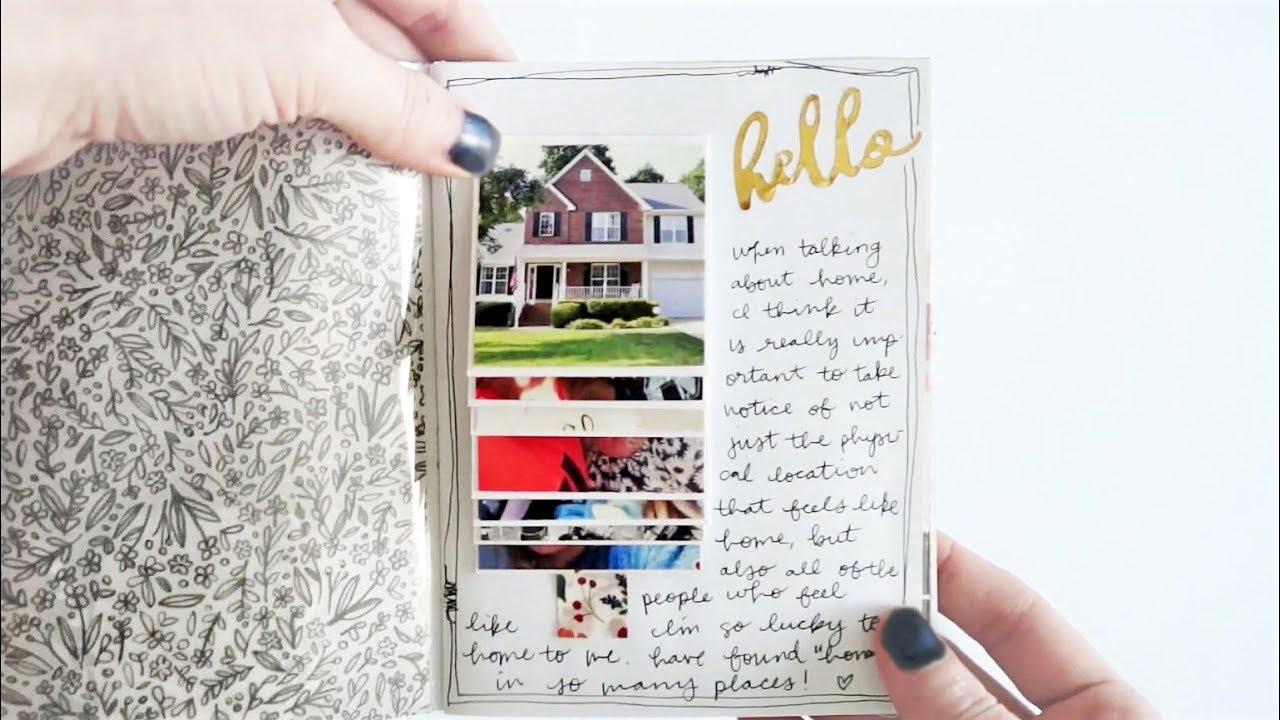 hello
when talking
about home,
I think it
is really imp-
ortant to take
notice of not
just the physi-
cal location
that feels like
home, but
also all of the
people who feel
like I'm so lucky to
home to me. have found "home
in so many places! ♡